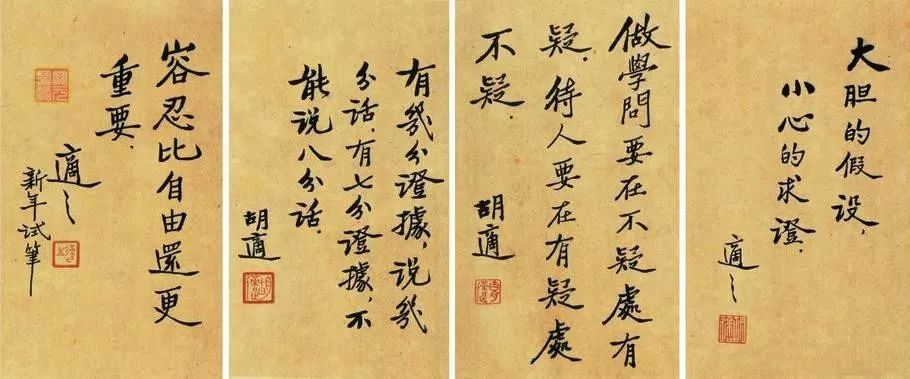 大胆的假設,
小心的求證.
適之
做學問要在不疑處有
疑,待人要在有疑處
不疑
胡適
有幾分證據,說幾
分話,有七分證據,不
能說八分話.
胡適
容忍比自由還更
重要.
適之
新年試筆